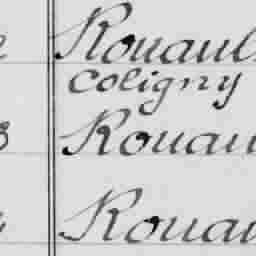 Rouaul
Coligny
Rouau
Rouau